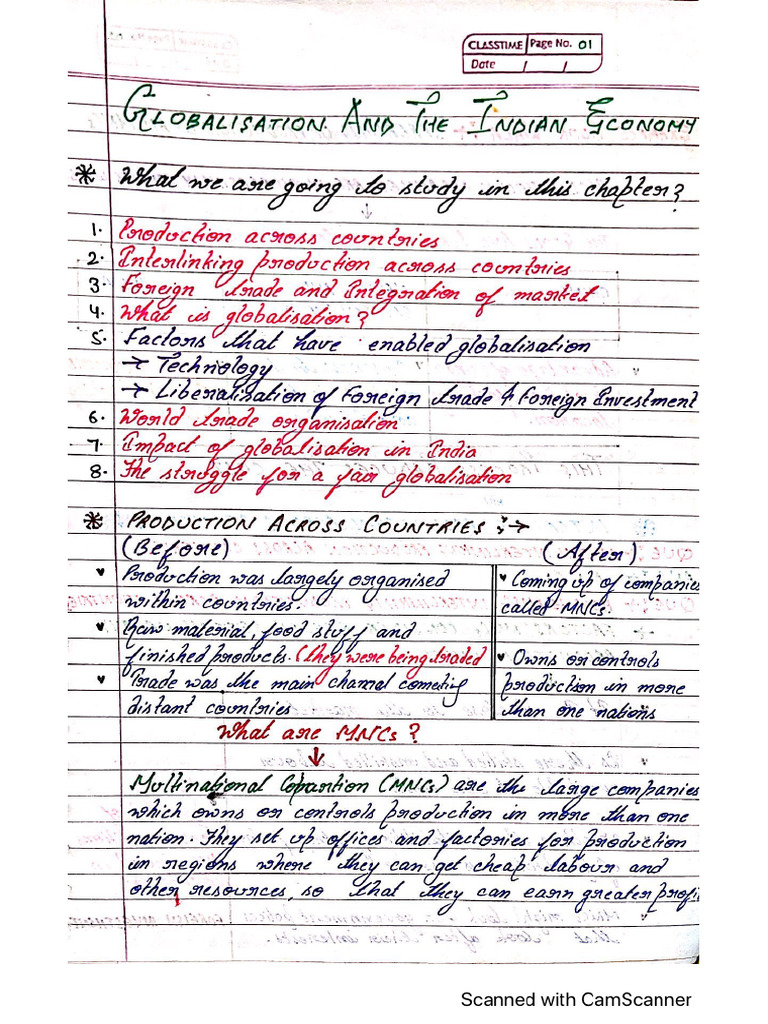 CLASSTIME Page No. 01
Date / /
GLOBALISATION AND THE INDIAN ECONOMY
* What we are going to study in this chapter?
↓
1. Production across countries
2. Interlinking production across countries
3. Foreign trade and Integration of market
4. What is globalisation?
5. Factors that have enabled globalisation
→ Technology
→ Liberalisation of Foreign trade & Foreign Investment
6. World trade organisation
7. Impact of globalisation in India
8. The struggle for a fair globalisation
* PRODUCTION ACROSS COUNTRIES :→
(Before) (After)
Production was largely organised
within countries.
Raw material, food stuff and
finished products. (They were being traded
Trade was the main channel conneting
distant countries
Coming up of companies
called MNCs
Owns or controls
production in more
than one nations
What are MNCs?
↓
Multinational Coparation (MNCs) are the large companies
which owns or controls production in more than one
nation. They set up offices and factories for production
in regions where they can get cheap labour and
other resources, so that they can earn greater profi
Scanned with CamScanner